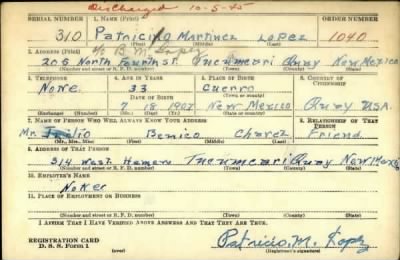 Discharged 10-5-45
SERIAL NUMBER 1. NAME (Print) ORDER NUMBER
310 Patricio Martinez Lopez 1040
(First) (Middle) (Last)
2. ADDRESS (Print) c/o B. M. Lopez
206 North Fourth St. Tucumcari Quay New Mexico
(Number and street or R. F. D. number) (Town) (County) (State)
3. TELEPHONE 4. AGE IN YEARS 5. PLACE OF BIRTH 6. COUNTRY OF CITIZENSHIP
None 33 Cuerro
DATE OF BIRTH (Town or county)
7 18 1907 New Mexico Quay USA.
(Mo.) (Day) (Yr.) (State or country)
7. NAME OF PERSON WHO WILL ALWAYS KNOW YOUR ADDRESS 8. RELATIONSHIP OF THAT PERSON
Mr. Benico Chavez Friend
(Mr., Mrs., Miss) (First) (Middle) (Last)
9. ADDRESS OF THAT PERSON
314 West Tucumcari Quay New Mex
(Number and street or R. F. D. number) (Town) (County) (State)
10. EMPLOYER'S NAME
None
11. PLACE OF EMPLOYMENT OR BUSINESS
(Number and street or R. F. D. number) (Town) (County) (State)
I AFFIRM THAT I HAVE VERIFIED ABOVE ANSWERS AND THAT THEY ARE TRUE.
REGISTRATION CARD
D. S. S. Form 1 (over) Patricio. M. Lopez
(Registrant's signature)